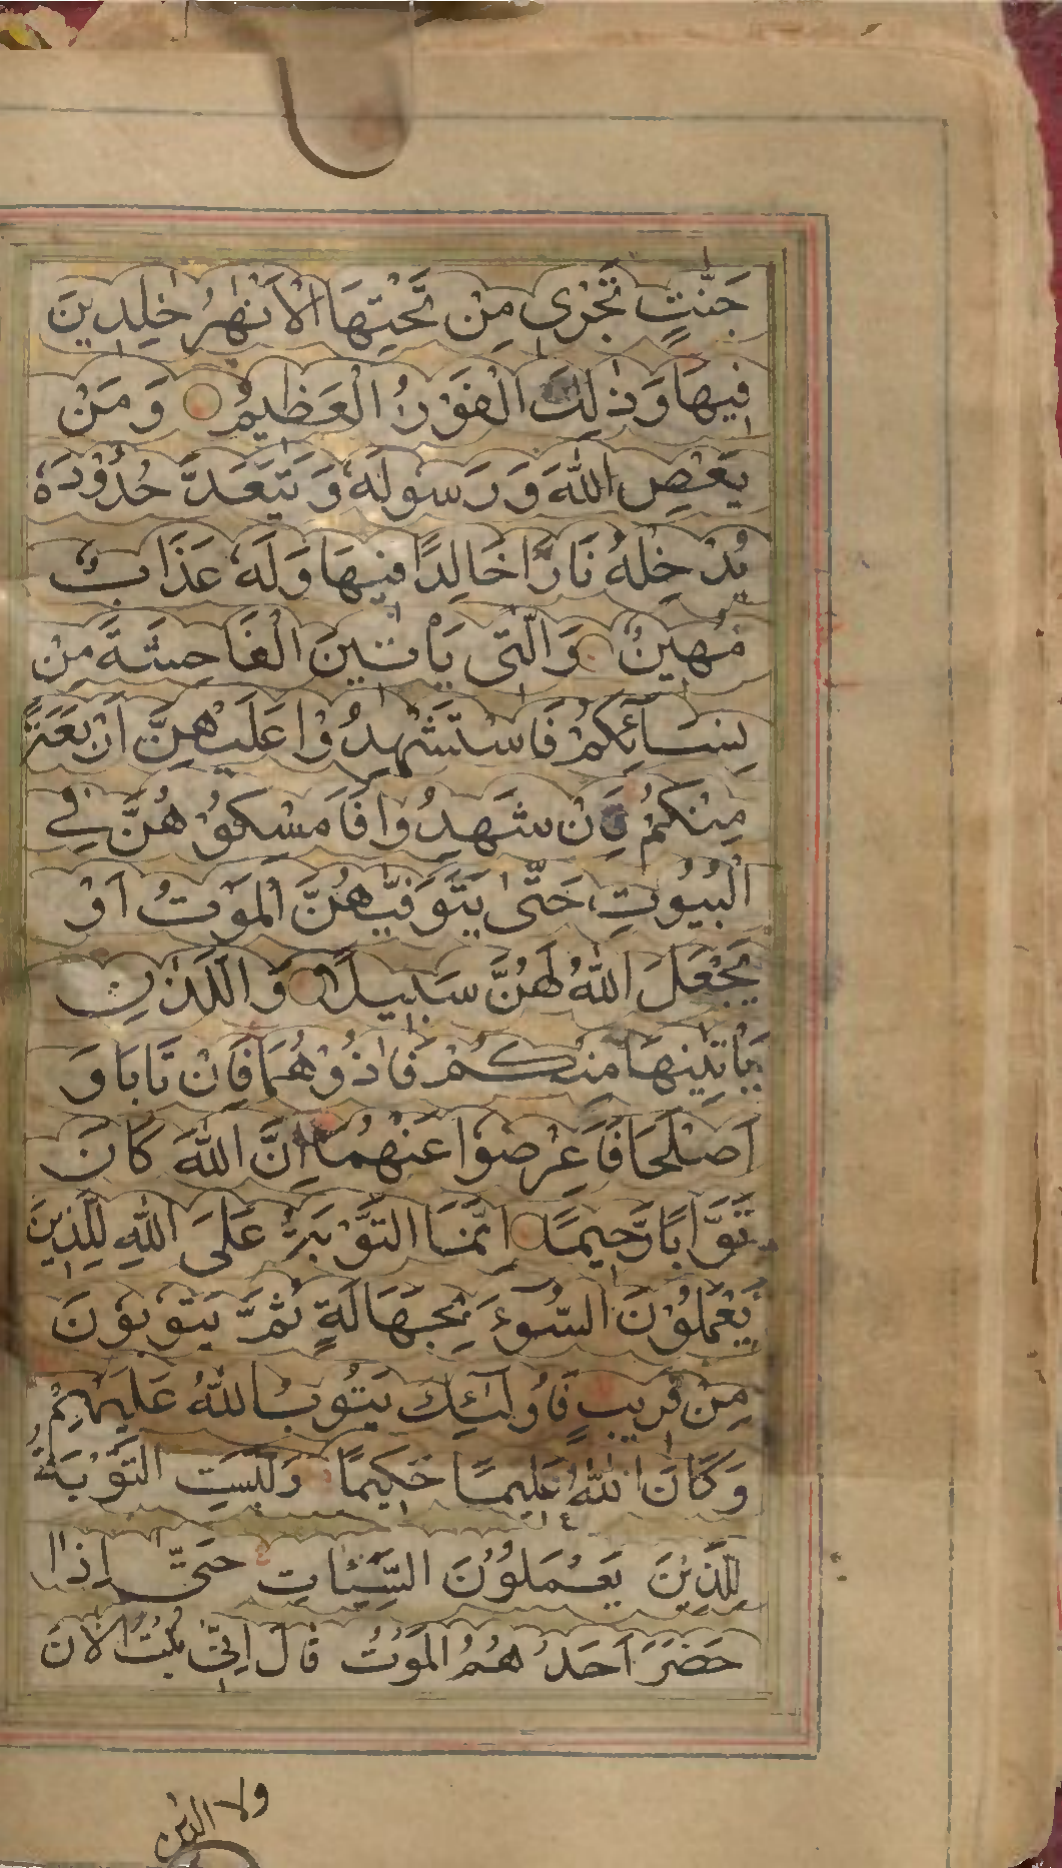 جَنّٰتٍ تَجْرِى مِنْ تَحْتِهَا الْاَنْهٰرُ خٰلِدِينَ
فِيهَا وَذٰلِكَ الْفَوْزُ الْعَظِيمُ وَمَنْ
يَعْصِ اللّٰهَ وَرَسُولَهٗ وَيَتَعَدَّ حُدُوْدَهٗ
يُدْخِلْهُ نَارًا خَالِدًا فِيهَا وَلَهٗ عَذَابٌ
مُهِينٌ وَالّٰتِى يَاْتِينَ الْفَاحِشَةَ مِنْ
نِسَآئِكُمْ فَاسْتَشْهِدُوْا عَلَيْهِنَّ اَرْبَعَةً
مِنْكُمْ فَاِنْ شَهِدُوا فَاَمْسِكُوْهُنَّ فِى
الْبُيُوتِ حَتّٰى يَتَوَفّٰيهُنَّ الْمَوْتُ اَوْ
يَجْعَلَ اللّٰهُ لَهُنَّ سَبِيلًا وَالَّذٰنِ
يَاْتِيٰنِهَا مِنْكُمْ فَاٰذُوْهُمَا فَاِنْ تَابَا وَ
اَصْلَحَا فَاَعْرِضُوْا عَنْهُمَا اِنَّ اللّٰهَ كَانَ
تَوَّابًا رَّحِيمًا اِنَّمَا التَّوْبَةُ عَلَى اللّٰهِ لِلَّذِينَ
يَعْمَلُوْنَ السُّوٓءَ بِجَهَالَةٍ ثُمَّ يَتُوْبُوْنَ
مِنْ قَرِيبٍ فَاُولٰٓئِكَ يَتُوْبُ اللّٰهُ عَلَيْهِمْ
وَكَانَ اللّٰهُ عَلِيمًا حَكِيمًا وَلَيْسَتِ التَّوْبَةُ
لِلَّذِيْنَ يَعْمَلُوْنَ السَّيِّئَاتِ حَتّٰى اِذَا
حَضَرَ اَحَدَهُمُ الْمَوْتُ قَالَ اِنِّى تُبْتُ الْاٰنَ
ولا الذين